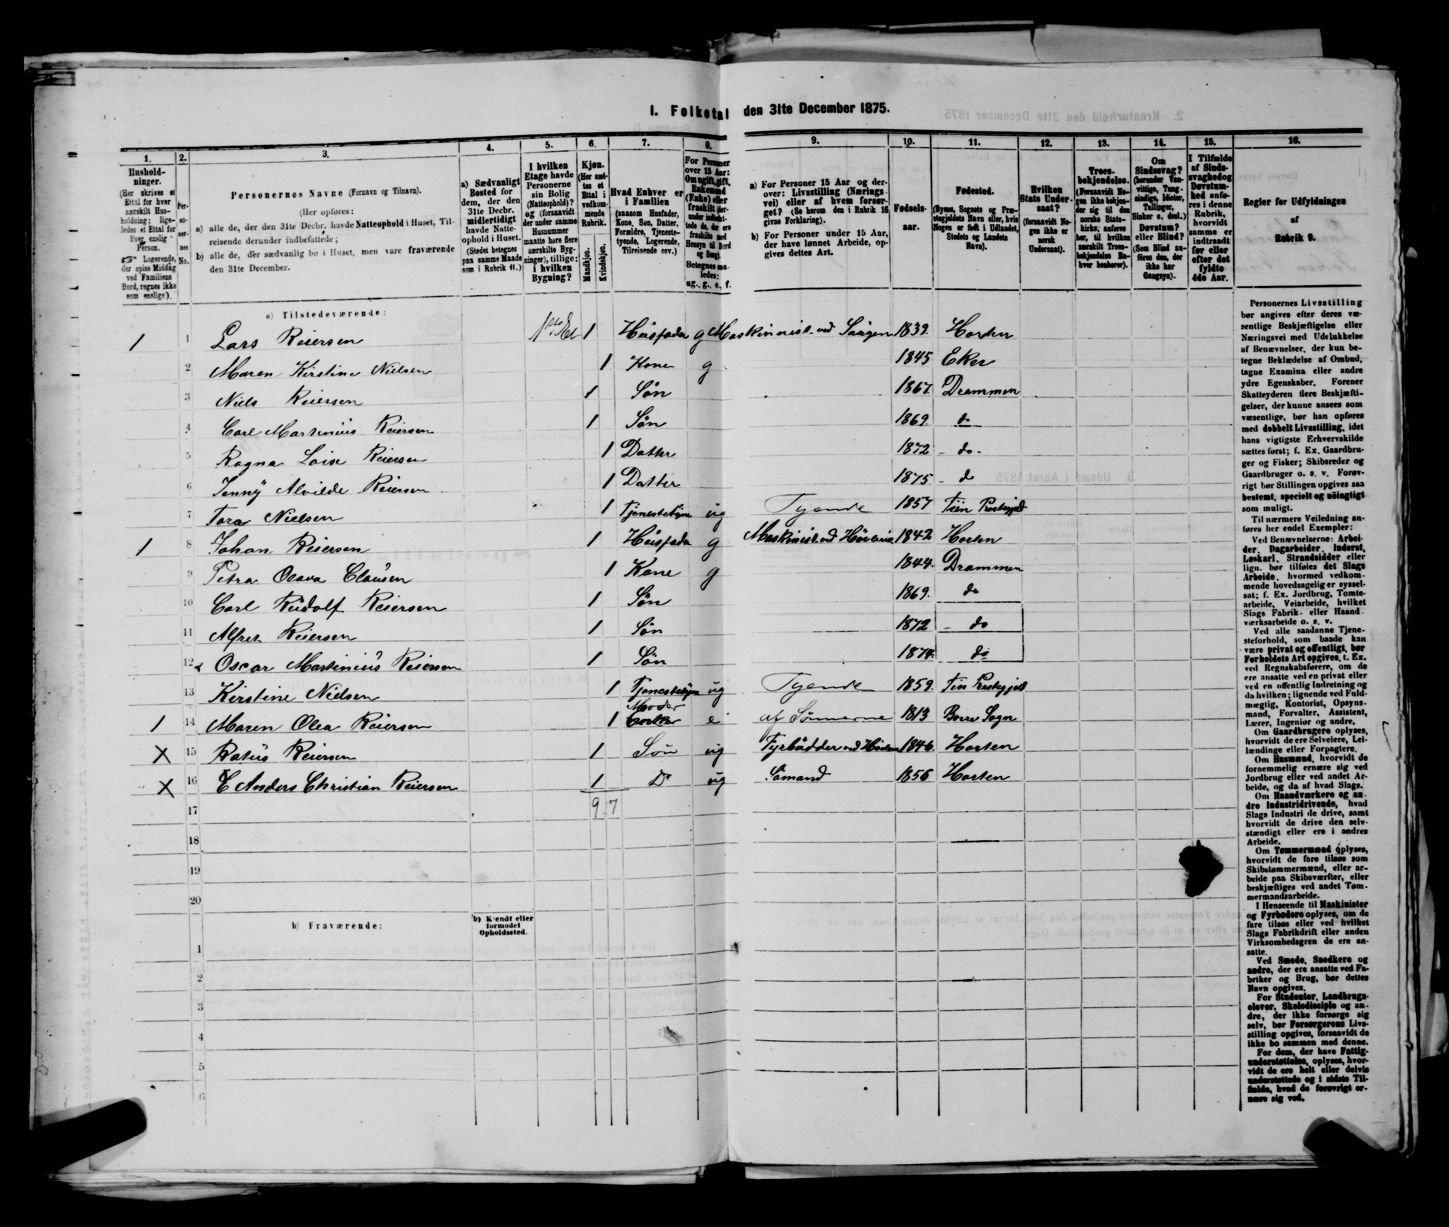 1. Folketal den 31te December 1875.
1. 2. 3. 4. 5. 6. 7. 8. 9. 10. 11. 12. 13. 14. 15. 16.
Husholdninger.
(Her skrives et Ettal for hver særskilt Husholdning; ligeledes et Ettal for hver enslig Person.
Logerende, der spise Middag ved Familiens Bord, regnes ikke som enslige).
Personernes No.
Personernes Navne (Fornavn og Tilnavn).
(Her opføres:
a) alle de, der den 31te Decbr. havde Natteophold i Huset, Tilreisende derunder indbefattede;
b) alle de, der sædvanlig bo i Huset, men vare fraværende den 31te December.
a) Sædvanligt Bosted for dem, der den 31te Decbr. midlertidigt havde Natteophold i Huset.
(Stedet betegnes paa samme Maade som i Rubrik 11.)
I hvilken Etage havde Personerne sin Bolig (Natteophold)? og (forsaavidt der under samme Husnummer maatte høre flere særskilte Bygninger), tillige: i hvilken Bygning?
Kjøn. (Her sættes et Ettal i vedkommende Rubrik.
Mandkjøn. Kvindekjøn.
Hvad Enhver er i Familien
(saasom Husfader, Kone, Søn, Datter, Forældre, Tjenestetyende, Logerende, Tilreisende osv.)
For Personer over 15 Aar: Om ugift, gift, Enkemand (Enke) eller fraskilt
Betegnes saaledes: ug., g., e., f.
a) For Personer 15 Aar og derover: Livsstilling (Næringsvei) eller af hvem forsørget? (Se herom den i Rubrik 16 givne Forklaring).
b) For Personer under 15 Aar, der have lønnet Arbeide, opgives dettes Art.
Fødselsaar.
Fødested.
(Byens, Sognets og Præstegjeldets Navn eller, hvis Nogen er født i Udlandet, Stedets og Landets Navn).
Hvilken Stats Undersaat?
(forsaavidt Nogen ikke er norsk Undersaat).
Troesbekjendelse.
(Forsaavidt Nogen ikke bekjender sig til den norske Statskirke, anføres her, til hvilken Troesbekjendelse Enhver henhører).
Om Sindssvag? (herunder Vanvittige, Tungsindige, Idioter, Tullinger, Sinker o. desl.) Døvstum? eller Blind?
(Som Blind anføres den, der ikke har Gangsyn).
I Tilfælde af Sindssvaghed og Døvstumhed anføres i denne Rubrik, hvorvidt samme er indtraadt før eller efter det fyldte 4de Aar.
Regler for Udfyldningen af Rubrik 9.
a) Tilstedeværende:
1 1 Lars Reiersen 1ste Et 1 Husfader g Maskinnist ved Saugen 1839. Horten
2 Maren Kirstine Nielsen 1 Kone g 1845 Eker
3 Niels Reiersen 1 Søn 1867. Drammen
4 Carl Martinius Reiersen 1 Søn 1869. do
Ragna Loise Reiersen 1 Datter 1872 do.
6 Jenny Alvilde Reiersen 1 Datter 1875 do
7 Tora Nielsen 1 ug Tyende 1857
1 8 Johan Reiersen 1 Husfader g 1842 Horten
9 Petra Olava Clausen 1 Kone g 1844. Drammen
10 Carl Rudolf Reiersen 1 Søn 1869. do
11 Alfred Reiersen 1 Søn 1872 do
12 Oscar Martinius Reiersen 1 Søn 1874. do
13 Kirstine Nielsen 1 ug Tyende 1859.
1 14 Maren Olea Reiersen 1 Moder e af Sønnerne 1813 Borre Sogn
X 15 Reiersen 1 Søn ug 1846. Horten
X 16 Anders Christian Reiersen 1 Do ug Sømand 1856 Horten
17 9 7
18
19
20
b) Fraværende:
b) Kjendt eller formodet Opholdssted.
1
2
3
4
5
6
Personernes Livsstilling bør angives efter deres væsentlige Beskjæftigelse eller Næringsvei med Udelukkelse af Benævnelser, der kun betegne Beklædelse af Ombud, tagne Examina eller andre ydre Egenskaber. Forener Skatteyderen flere Beskjæftigelser, der kunne ansees som væsentlige, bør han opføres med dobbelt Livsstilling, idet hans vigtigste Erhvervskilde sættes først; f. Ex. Gaardbruger og Fisker; Skibsreder og Gaardbruger o. s. v. Forøvrigt bør Stillingen opgives saa bestemt, specielt og nøiagtigt som muligt.
Til nærmere Veiledning anføres her endel Exempler:
Ved Benævnelserne: Arbeider, Dagarbeider, Inderst, Løskarl, Strandsidder eller lign. bør tilføies det Slags Arbeide, hvormed vedkommende hovedsagelig er sysselsat; f. Ex. Jordbrug, Tomtearbeide, Veiarbeide, hvilket Slags Fabrik- eller Haandværksarbeide o. s. v.
Ved alle saadanne Tjenesteforhold, som baade kan være privat og offentligt, bør Forholdets Art opgives, t. Ex. ved Regnskabsførere, om de ere ansatte ved en privat eller ved en offentlig Indretning og da hvilken; lignende ved Fuldmægtig, Kontorist, Opsynsmand, Forvalter, Assistent, Lærer, Ingeniør og andre.
Om Gaardbrugere oplyses, hvorvidt de ere Selveiere, Leilændinge eller Forpagtere.
Om Husmænd, hvorvidt de fornemmelig ernære sig ved Jordbrug eller ved andet Arbeide, og da af hvad Slags.
Om Haandværkere og andre Industridrivende, hvad Slags Industri de drive, samt hvorvidt de drive den selvstændigt eller ere i andres Arbeide.
Om Tømmermænd oplyses, hvorvidt de fare tilsøs som Skibstømmermænd, eller arbeide paa Skibsværfter, eller beskjæftiges ved andet Tømmermandsarbeide.
I Henseende til Maskinister og Fyrbødere oplyses, om de fare tilsøs eller ved hvilket Slags Fabrikdrift eller anden Virksomhedsgren de ere ansatte.
Ved Smede, Snedkere og andre, der ere ansatte ved Fabriker og Brug, bør dettes Navn opgives.
For Studenter, Landbrugselever, Skoledisciple og andre, der ikke forsørge sig selv, bør Forsørgerens Livsstilling opgives, forsaavidt de ikke bo sammen med denne.
For dem, der have Fattigunderstøttelse, oplyses, hvorvidt de ere helt eller delvis understøttede og i sidste Tilfælde, hvad de forøvrigt ernære sig ved.